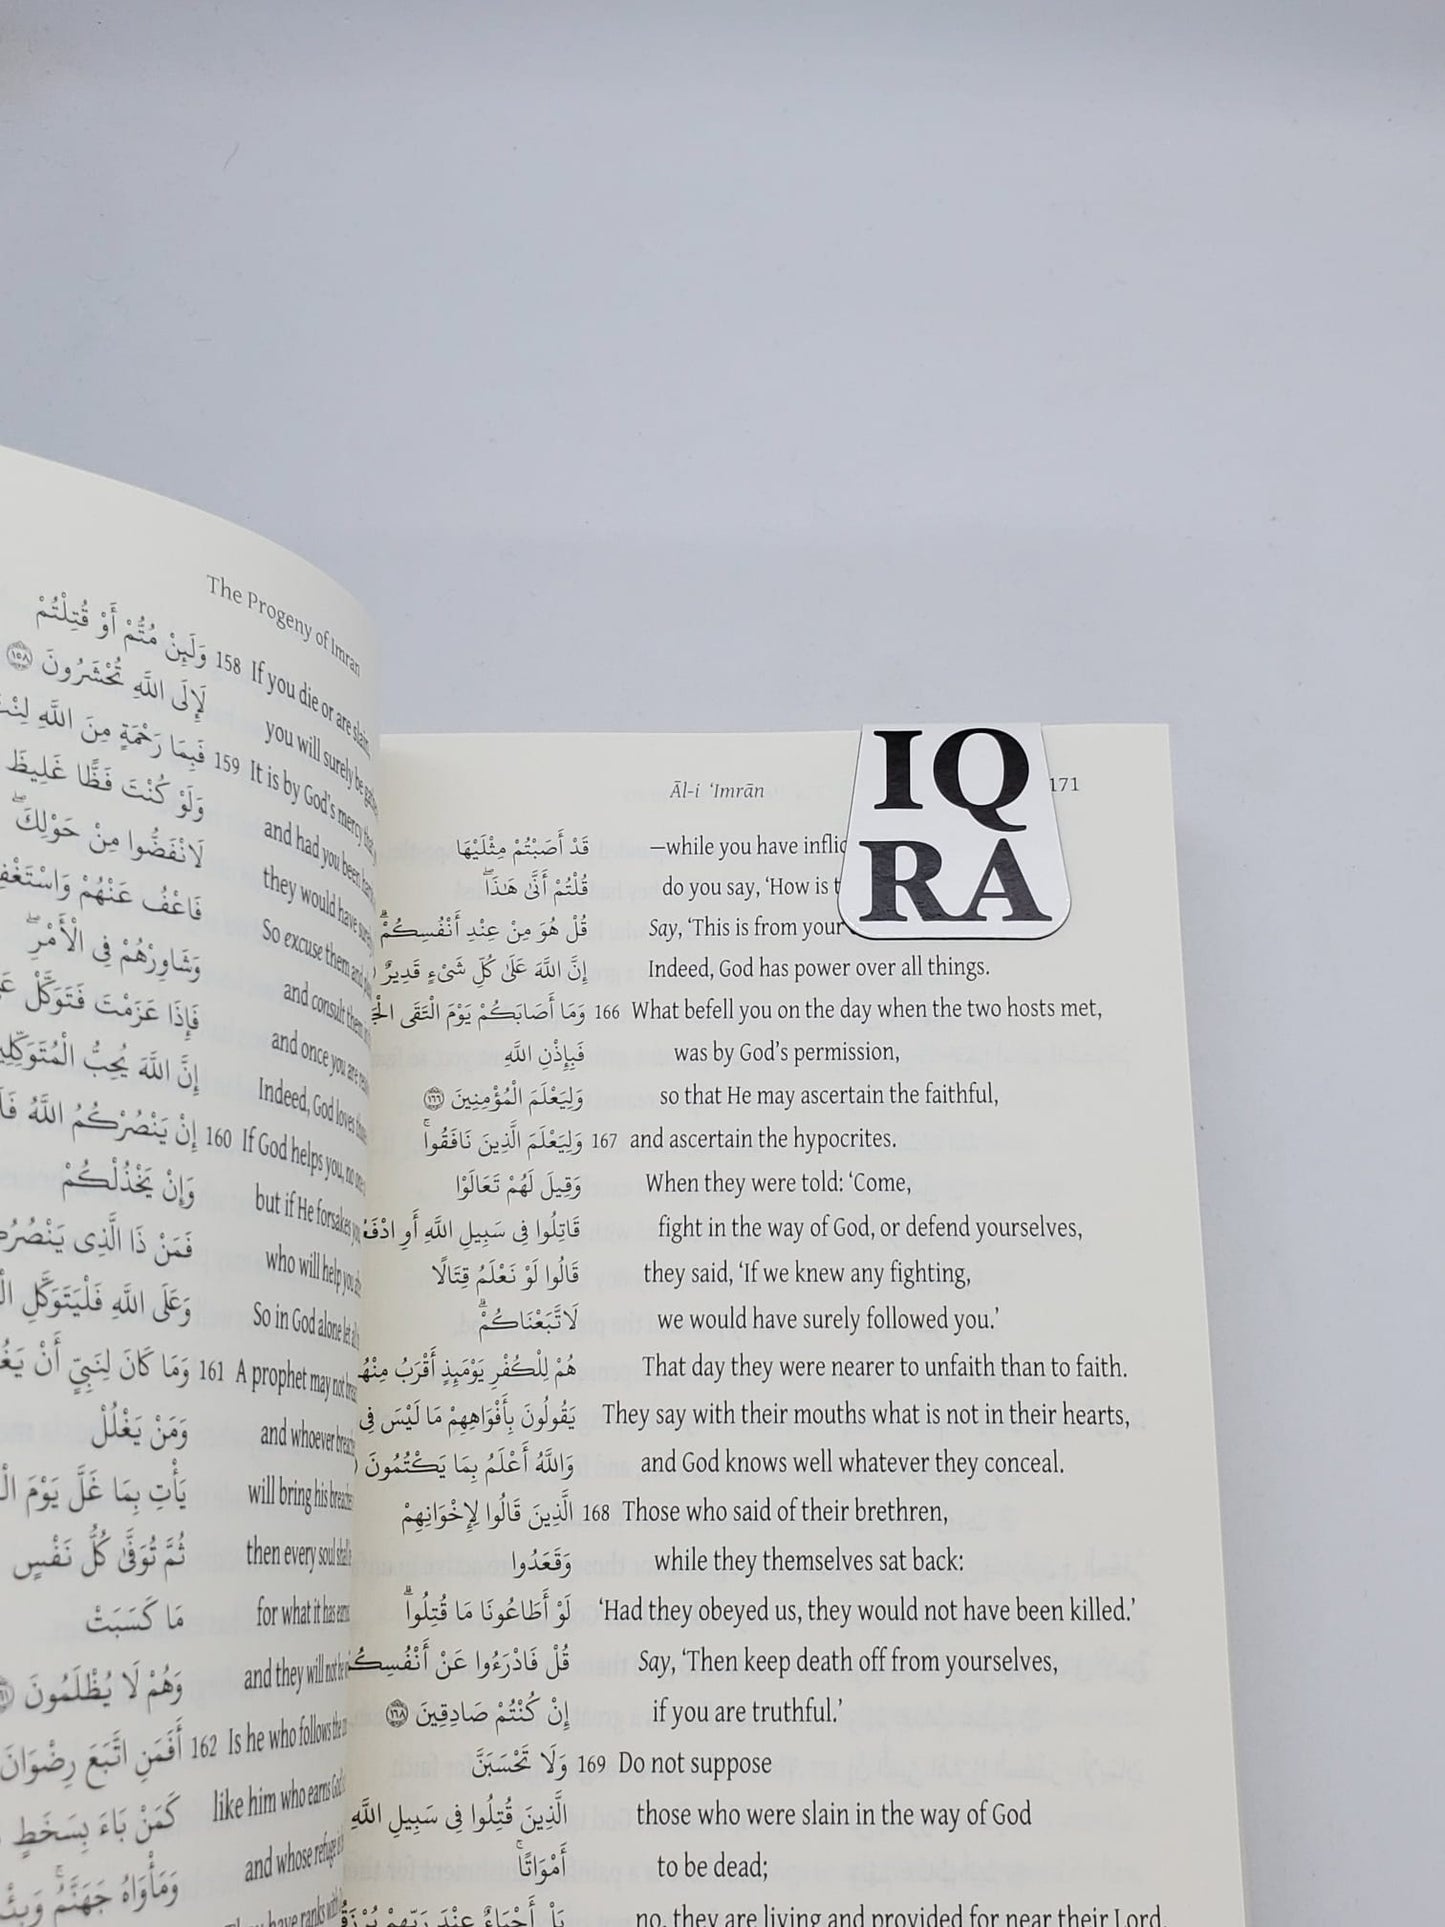 The Progeny of Imran
158 If you die or are slain, وَلَئِنْ مُتُّمْ أَوْ قُتِلْتُمْ
you will surely be لَإِلَى اللَّهِ تُحْشَرُونَ ١٥٨
159 It is by God's mercy that فَبِمَا رَحْمَةٍ مِنَ اللَّهِ
and had you been وَلَوْ كُنْتَ فَظًّا غَلِيظَ
they would have surely لَانْفَضُّوا مِنْ حَوْلِكَ ۖ
So excuse them and فَاعْفُ عَنْهُمْ
and consult them وَشَاوِرْهُمْ فِي الْأَمْرِ ۖ
and once you are فَإِذَا عَزَمْتَ فَتَوَكَّلْ
Indeed, God loves إِنَّ اللَّهَ يُحِبُّ
160 If God helps you, no one إِنْ يَنْصُرْكُمُ اللَّهُ
but if He forsakes you, وَإِنْ يَخْذُلْكُمْ
who will help you فَمَنْ ذَا الَّذِي
So in God alone let وَعَلَى اللَّهِ فَلْيَتَوَكَّلِ
161 A prophet may not وَمَا كَانَ لِنَبِيٍّ أَنْ
and whoever وَمَنْ يَغْلُلْ
will bring his يَأْتِ بِمَا غَلَّ يَوْمَ
then every soul ثُمَّ تُوَفَّىٰ كُلُّ نَفْسٍ
for what it has مَا كَسَبَتْ
and they will not be وَهُمْ لَا يُظْلَمُونَ
162 Is he who follows the أَفَمَنِ اتَّبَعَ رِضْوَانَ
like him who earns كَمَنْ بَاءَ بِسَخَطٍ
and whose refuge وَمَأْوَاهُ جَهَنَّمُ ۚ
have ranks
Āl-i 'Imrān 171
IQ
RA
قَدْ أَصَبْتُمْ مِثْلَيْهَا —while you have
قُلْتُمْ أَنَّىٰ هَـٰذَا ۖ do you say, 'How is
قُلْ هُوَ مِنْ عِنْدِ أَنْفُسِكُمْ ۗ Say, 'This is from your
إِنَّ اللَّهَ عَلَىٰ كُلِّ شَيْءٍ قَدِيرٌ Indeed, God has power over all things.
وَمَا أَصَابَكُمْ يَوْمَ الْتَقَى 166 What befell you on the day when the two hosts met,
فَبِإِذْنِ اللَّهِ was by God's permission,
وَلِيَعْلَمَ الْمُؤْمِنِينَ ١٦٦ so that He may ascertain the faithful,
وَلِيَعْلَمَ الَّذِينَ نَافَقُوا ۚ 167 and ascertain the hypocrites.
وَقِيلَ لَهُمْ تَعَالَوْا When they were told: 'Come,
قَاتِلُوا فِي سَبِيلِ اللَّهِ أَوِ fight in the way of God, or defend yourselves,
قَالُوا لَوْ نَعْلَمُ قِتَالًا they said, 'If we knew any fighting,
لَاتَّبَعْنَاكُمْ ۗ we would have surely followed you.'
هُمْ لِلْكُفْرِ يَوْمَئِذٍ أَقْرَبُ That day they were nearer to unfaith than to faith.
يَقُولُونَ بِأَفْوَاهِهِمْ مَا لَيْسَ فِي They say with their mouths what is not in their hearts,
وَاللَّهُ أَعْلَمُ بِمَا يَكْتُمُونَ and God knows well whatever they conceal.
الَّذِينَ قَالُوا لِإِخْوَانِهِمْ 168 Those who said of their brethren,
وَقَعَدُوا while they themselves sat back:
لَوْ أَطَاعُونَا مَا قُتِلُوا ۗ 'Had they obeyed us, they would not have been killed.'
قُلْ فَادْرَءُوا عَنْ Say, 'Then keep death off from yourselves,
إِنْ كُنْتُمْ صَادِقِينَ ١٦٨ if you are truthful.'
وَلَا تَحْسَبَنَّ 169 Do not suppose
الَّذِينَ قُتِلُوا فِي سَبِيلِ اللَّهِ those who were slain in the way of God
أَمْوَاتًا ۚ to be dead;
بَلْ أَحْيَاءٌ عِنْدَ رَبِّهِمْ no, they are living and provided for near their Lord,